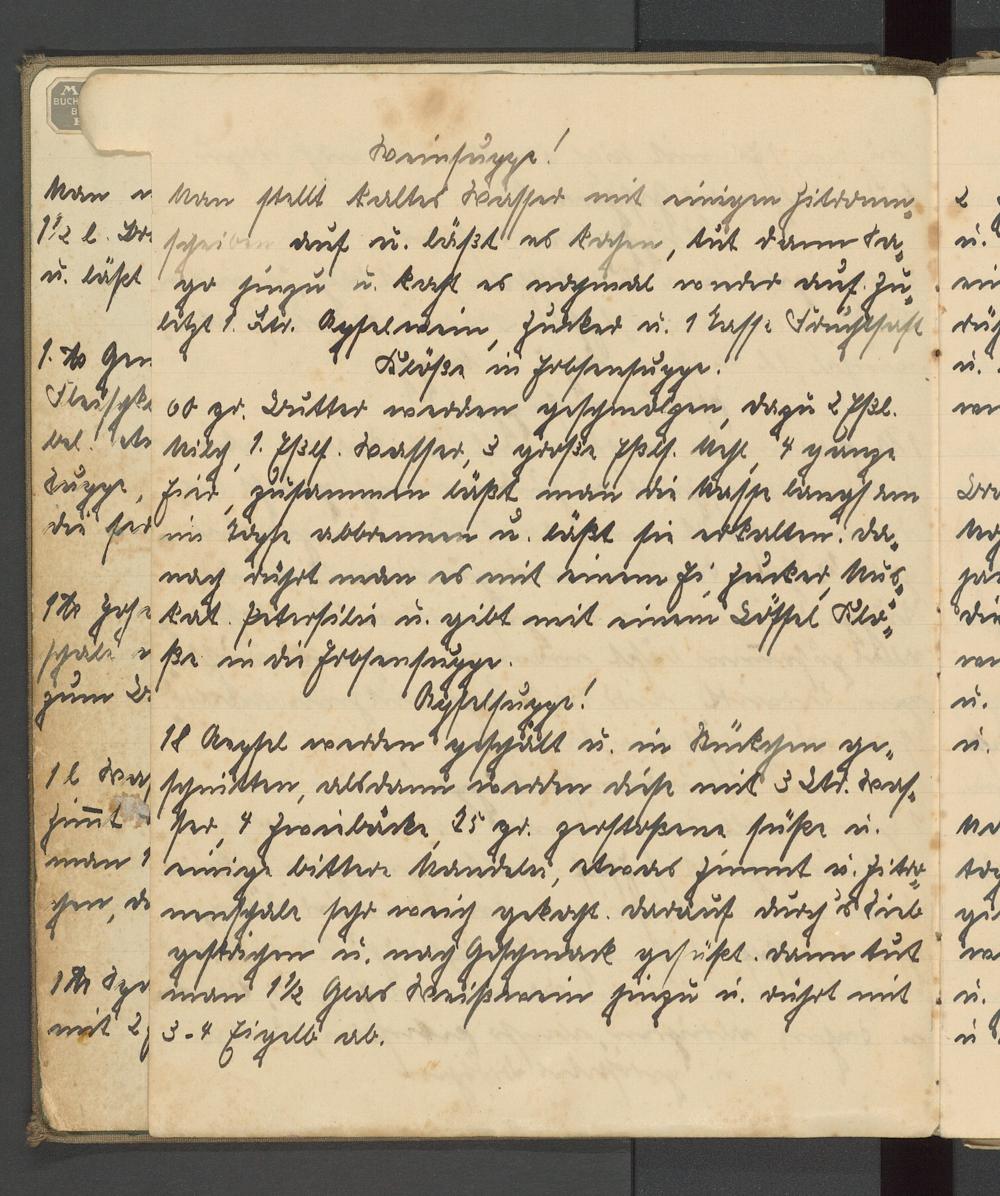 Weinsuppe!
Man stellt kaltes Wasser mit einigen Zitronen-
scheiben auf u. läßt es kochen, tut dann Sa-
go hinzu u. kocht es nochmal wieder auf. Zu-
letzt 1 Ltr. Apfelwein, Zucker u. 1 Tasse Fruchtsaft
Klöße in Erbsensuppe!
60 gr. Butter werden geschmolzen, dazu 2 Eßl.
Milch, 1. Eßlf. Wasser, 3 große Eßlf. Mehl, 4 ganze
Eier, zusammen läßt man die Masse langsam
im Topfe abbrennen u. läßt sie erkalten. Da-
nach rührt man es mit einem Ei, Zucker, Mus-
kat. Petersilie u. gibt mit einem Löffel Klö-
ße in die Erbsensuppe.
Apfelsuppe!
18 Aepfel werden geschält u. in Stückchen ge-
schnitten, alsdann werden diese mit 3 Ltr. Was-
ser, 4 Zwiebäcke, 25 gr. zerstoßene süße u.
einige bittere Mandeln, etwas Zimmt u. Zitro-
nenschale sehr weich gekocht. Darauf durch's Sieb
gestrichen u. nach Geschmack gesüßt. Dann tut
man 1 1/2 Glas Weißwein hinzu u. rührt mit
3-4 Eigelb ab.